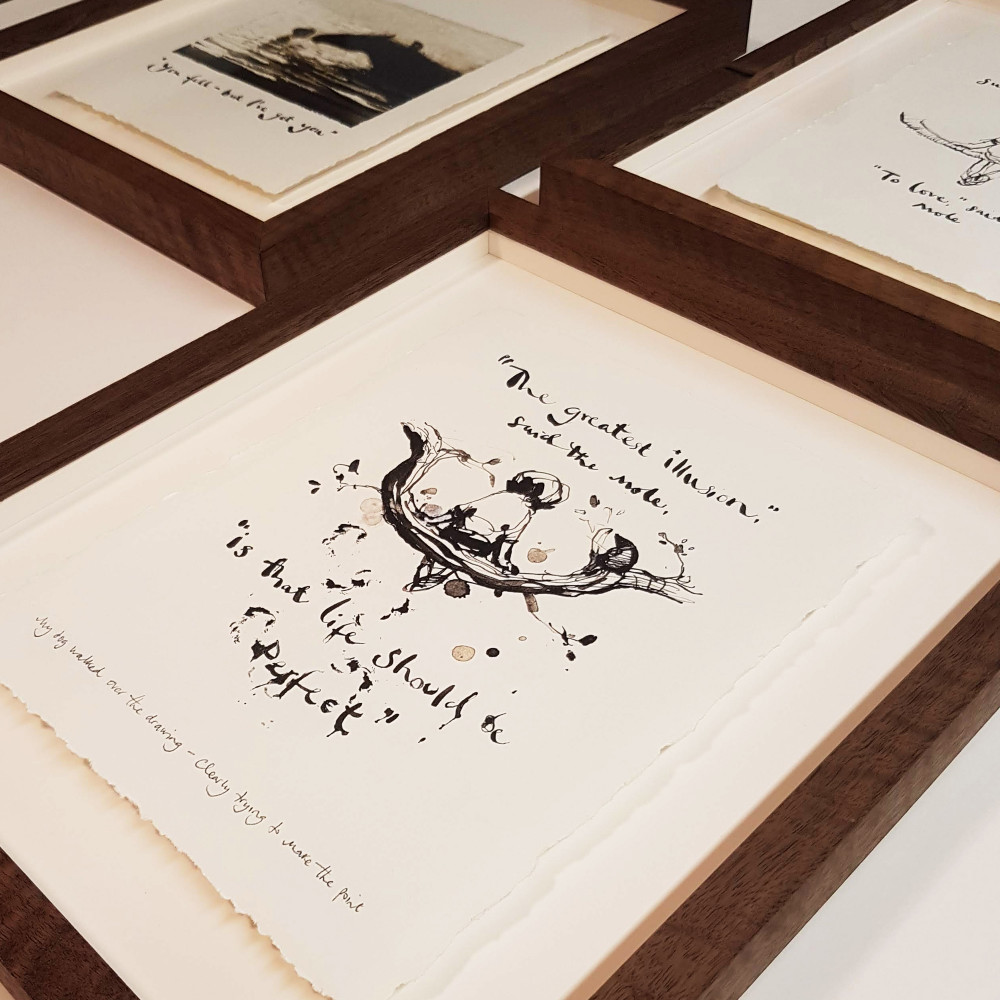 "you fell - but I've got you"
"To love," said
mole
"The greatest illusion,"
said the mole,
"is that life should be
Perfect".
My dog walked over the drawing - Clearly trying to make the point